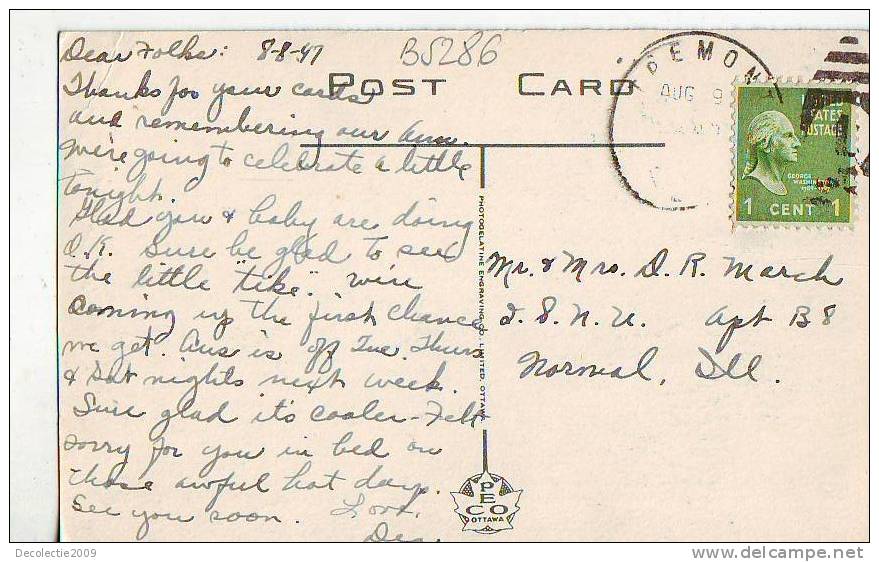 Dear Folks: 8-8-47
B5286
POST CARD
Thanks for your cards
and remembering our Ann.
We're going to celebrate a little
tonight.
Glad you & baby are doing
O.K. Sure be glad to see
the little "tike". We're
coming up the first chance
we get. Gus is off Tue. Thurs
& Sat nights next week.
Sure glad it's cooler - Felt
sorry for you in bed on
those awful hot days.
See you soon. Love,
AUG 9
UNITED
STATES
POSTAGE
GEORGE
WASHINGTON
1 CENT 1
Mr. & Mrs. D. R. March
I. S. N. U. Apt B8
Normal, Ill.
PHOTOGELATINE ENGRAVING CO., LIMITED, OTTAWA
PECO
OTTAWA
Decolectie2009